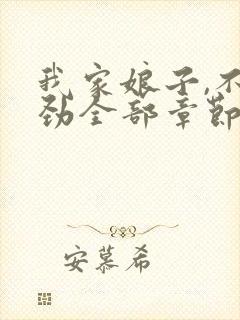 我家娘子,不
劲全部章节
安慕希